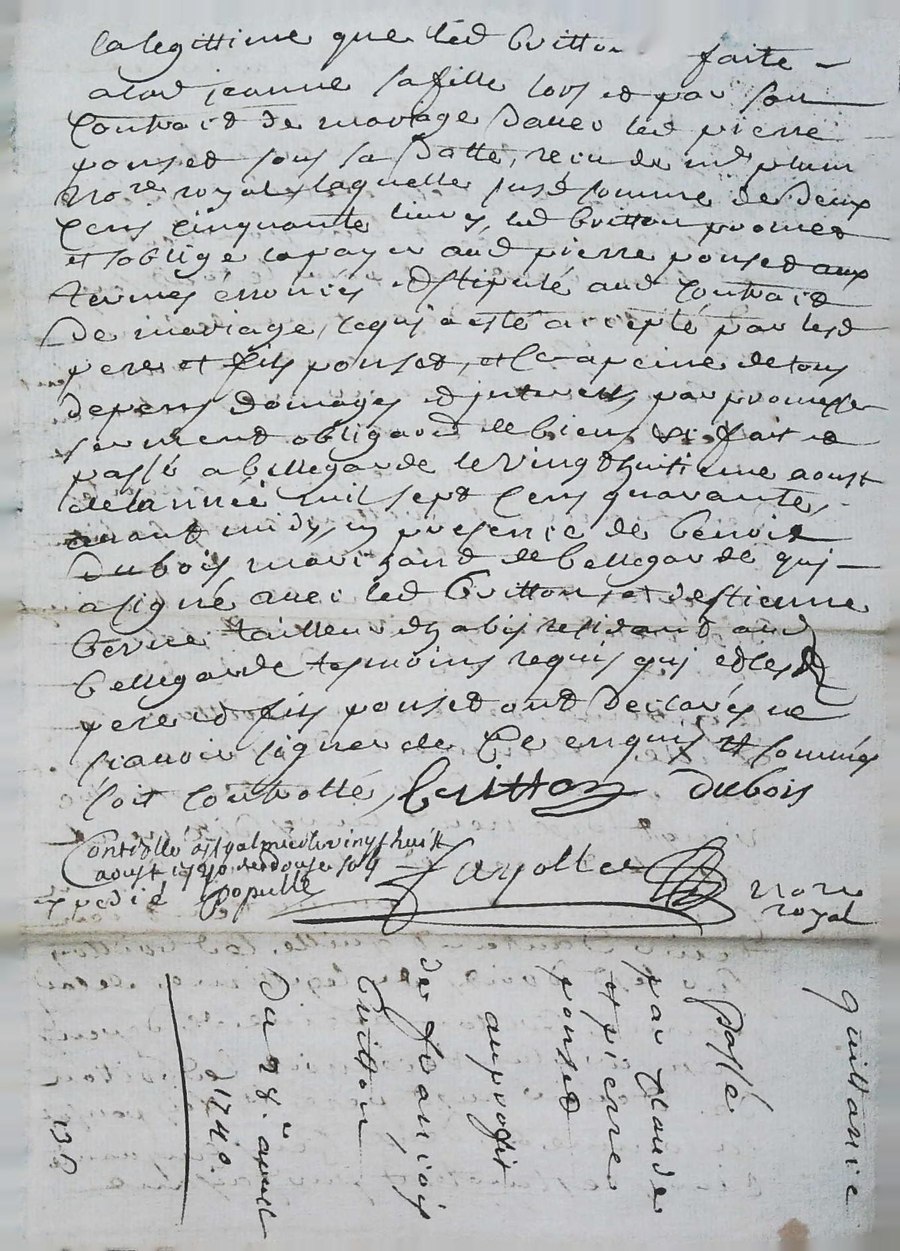 la legittime que led Critton faite
alad jeanne sa fille lors et par son
Contract de mariage davec led pierre
ponset sous sa datte, receu de m.e
no.re royal, laquelle susd somme de deux
Cens cinquante livres, led Critton promet
et soblige la payer aud pierre ponset aux
termes énoncés et stipulé aud Contract
de mariage, ce qui a esté accepté par lesd
pere et fils ponset, et Ce a peine de tous
depens domages et interests par promesse
serment obliga.on de biens &. fait et
passé a bellegarde le vingt huitieme aoust
de lannée mil sept Cens quarante,
avant midy, en presence de benoit
Dubois marchand de bellegarde qui
a signé avec led Critton, et destienne
tailleur dhabis residand aud
bellegarde tesmoins requis qui et lesd
pere et fils ponset ont declarés ne
scavoir signer de Ce enquis et sommés
soit controllé, Critton Dubois
Controllé a st galmier le vingt huit
aoust 1740 receu douze sols
expedié Populle
Fayolle no.re
royal
quittance
Passé
par Claude
et pierre
ponset
au proffit
de francois
Critton,
Du 28.e aoust
1740.